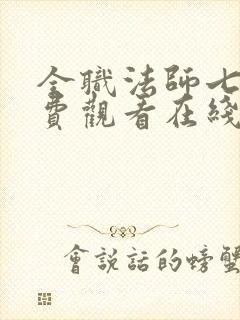 全職法師七
費觀看在綫
會説話的螃蟹